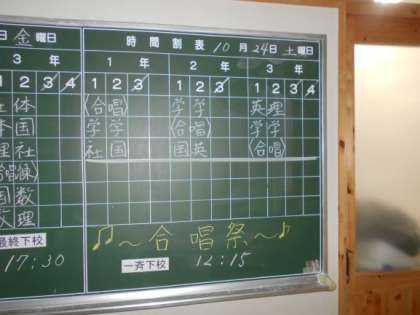 金曜日 時間割表 10月24日土曜日
3年 1年 2年 3年
1 2 3 4 1 2 3 1 2 3 1 2 3 4
体 〈合唱〉 学学 英理
国 学学 〈合唱〉 学学
理社 社国 国英 〈合唱〉
国数
理
最終下校 ♫〜合唱祭〜♪
17:30 一斉下校 12:15